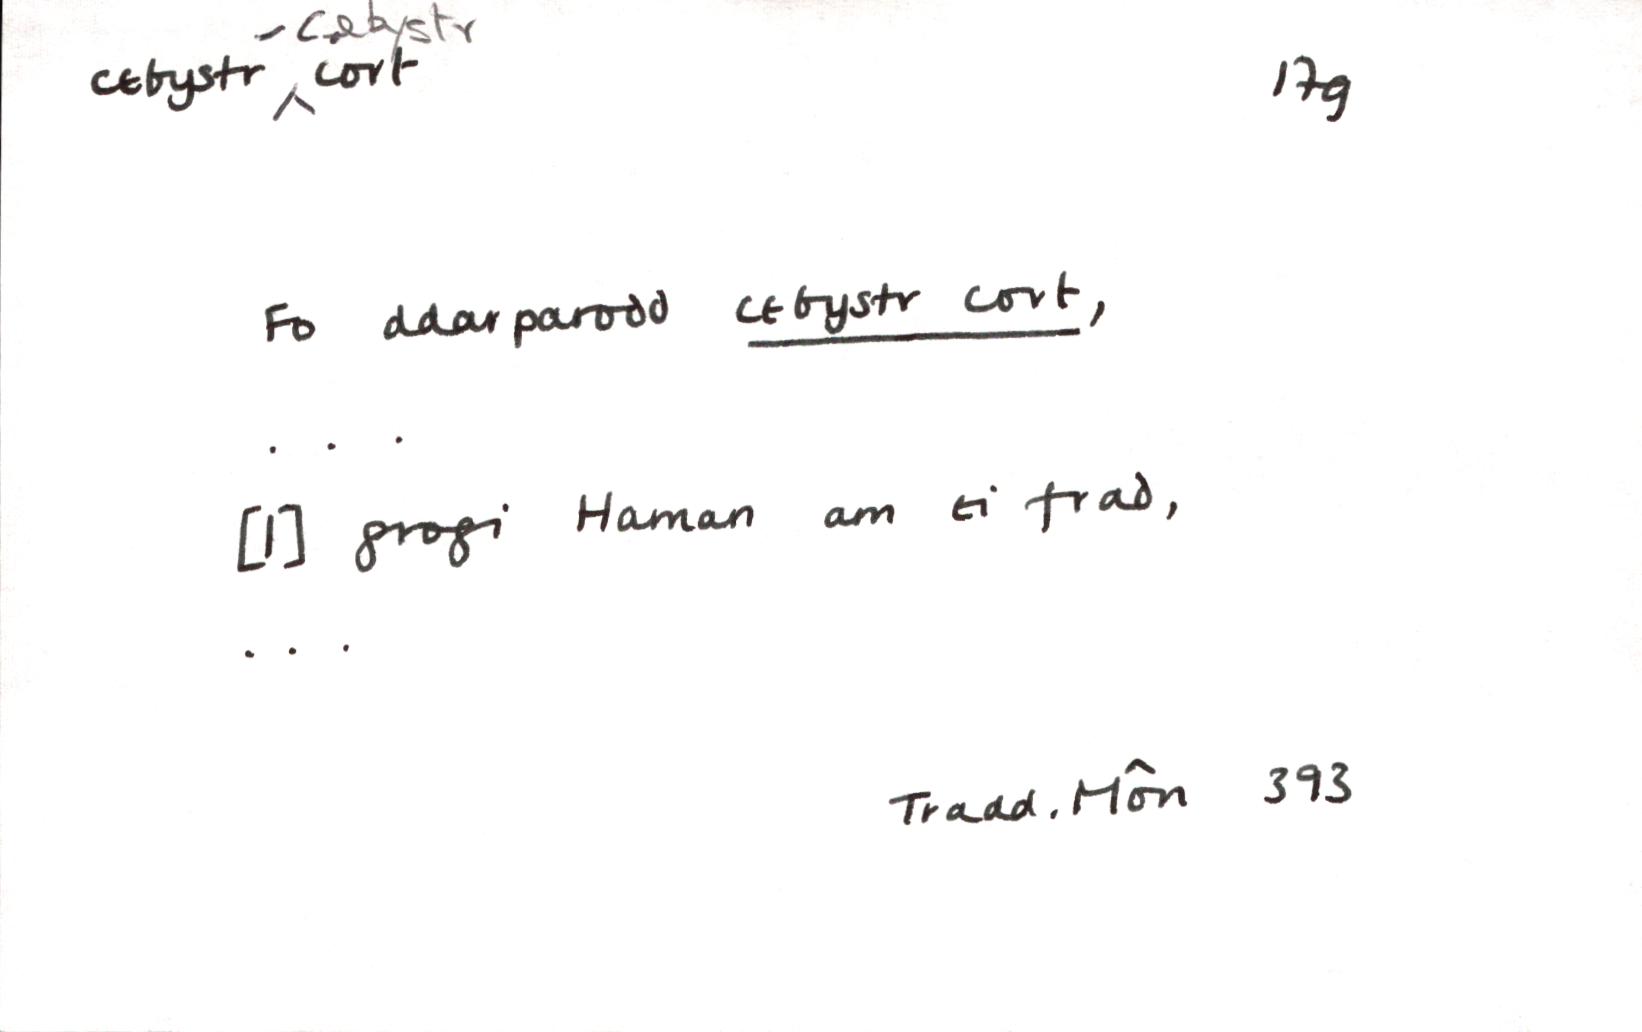 - cebystr
cebystr ^ cort 17g
Fo ddarparodd cebystr cort,
. . .
[I] grogi Haman am ei frad,
. . .
Tradd. Môn 393